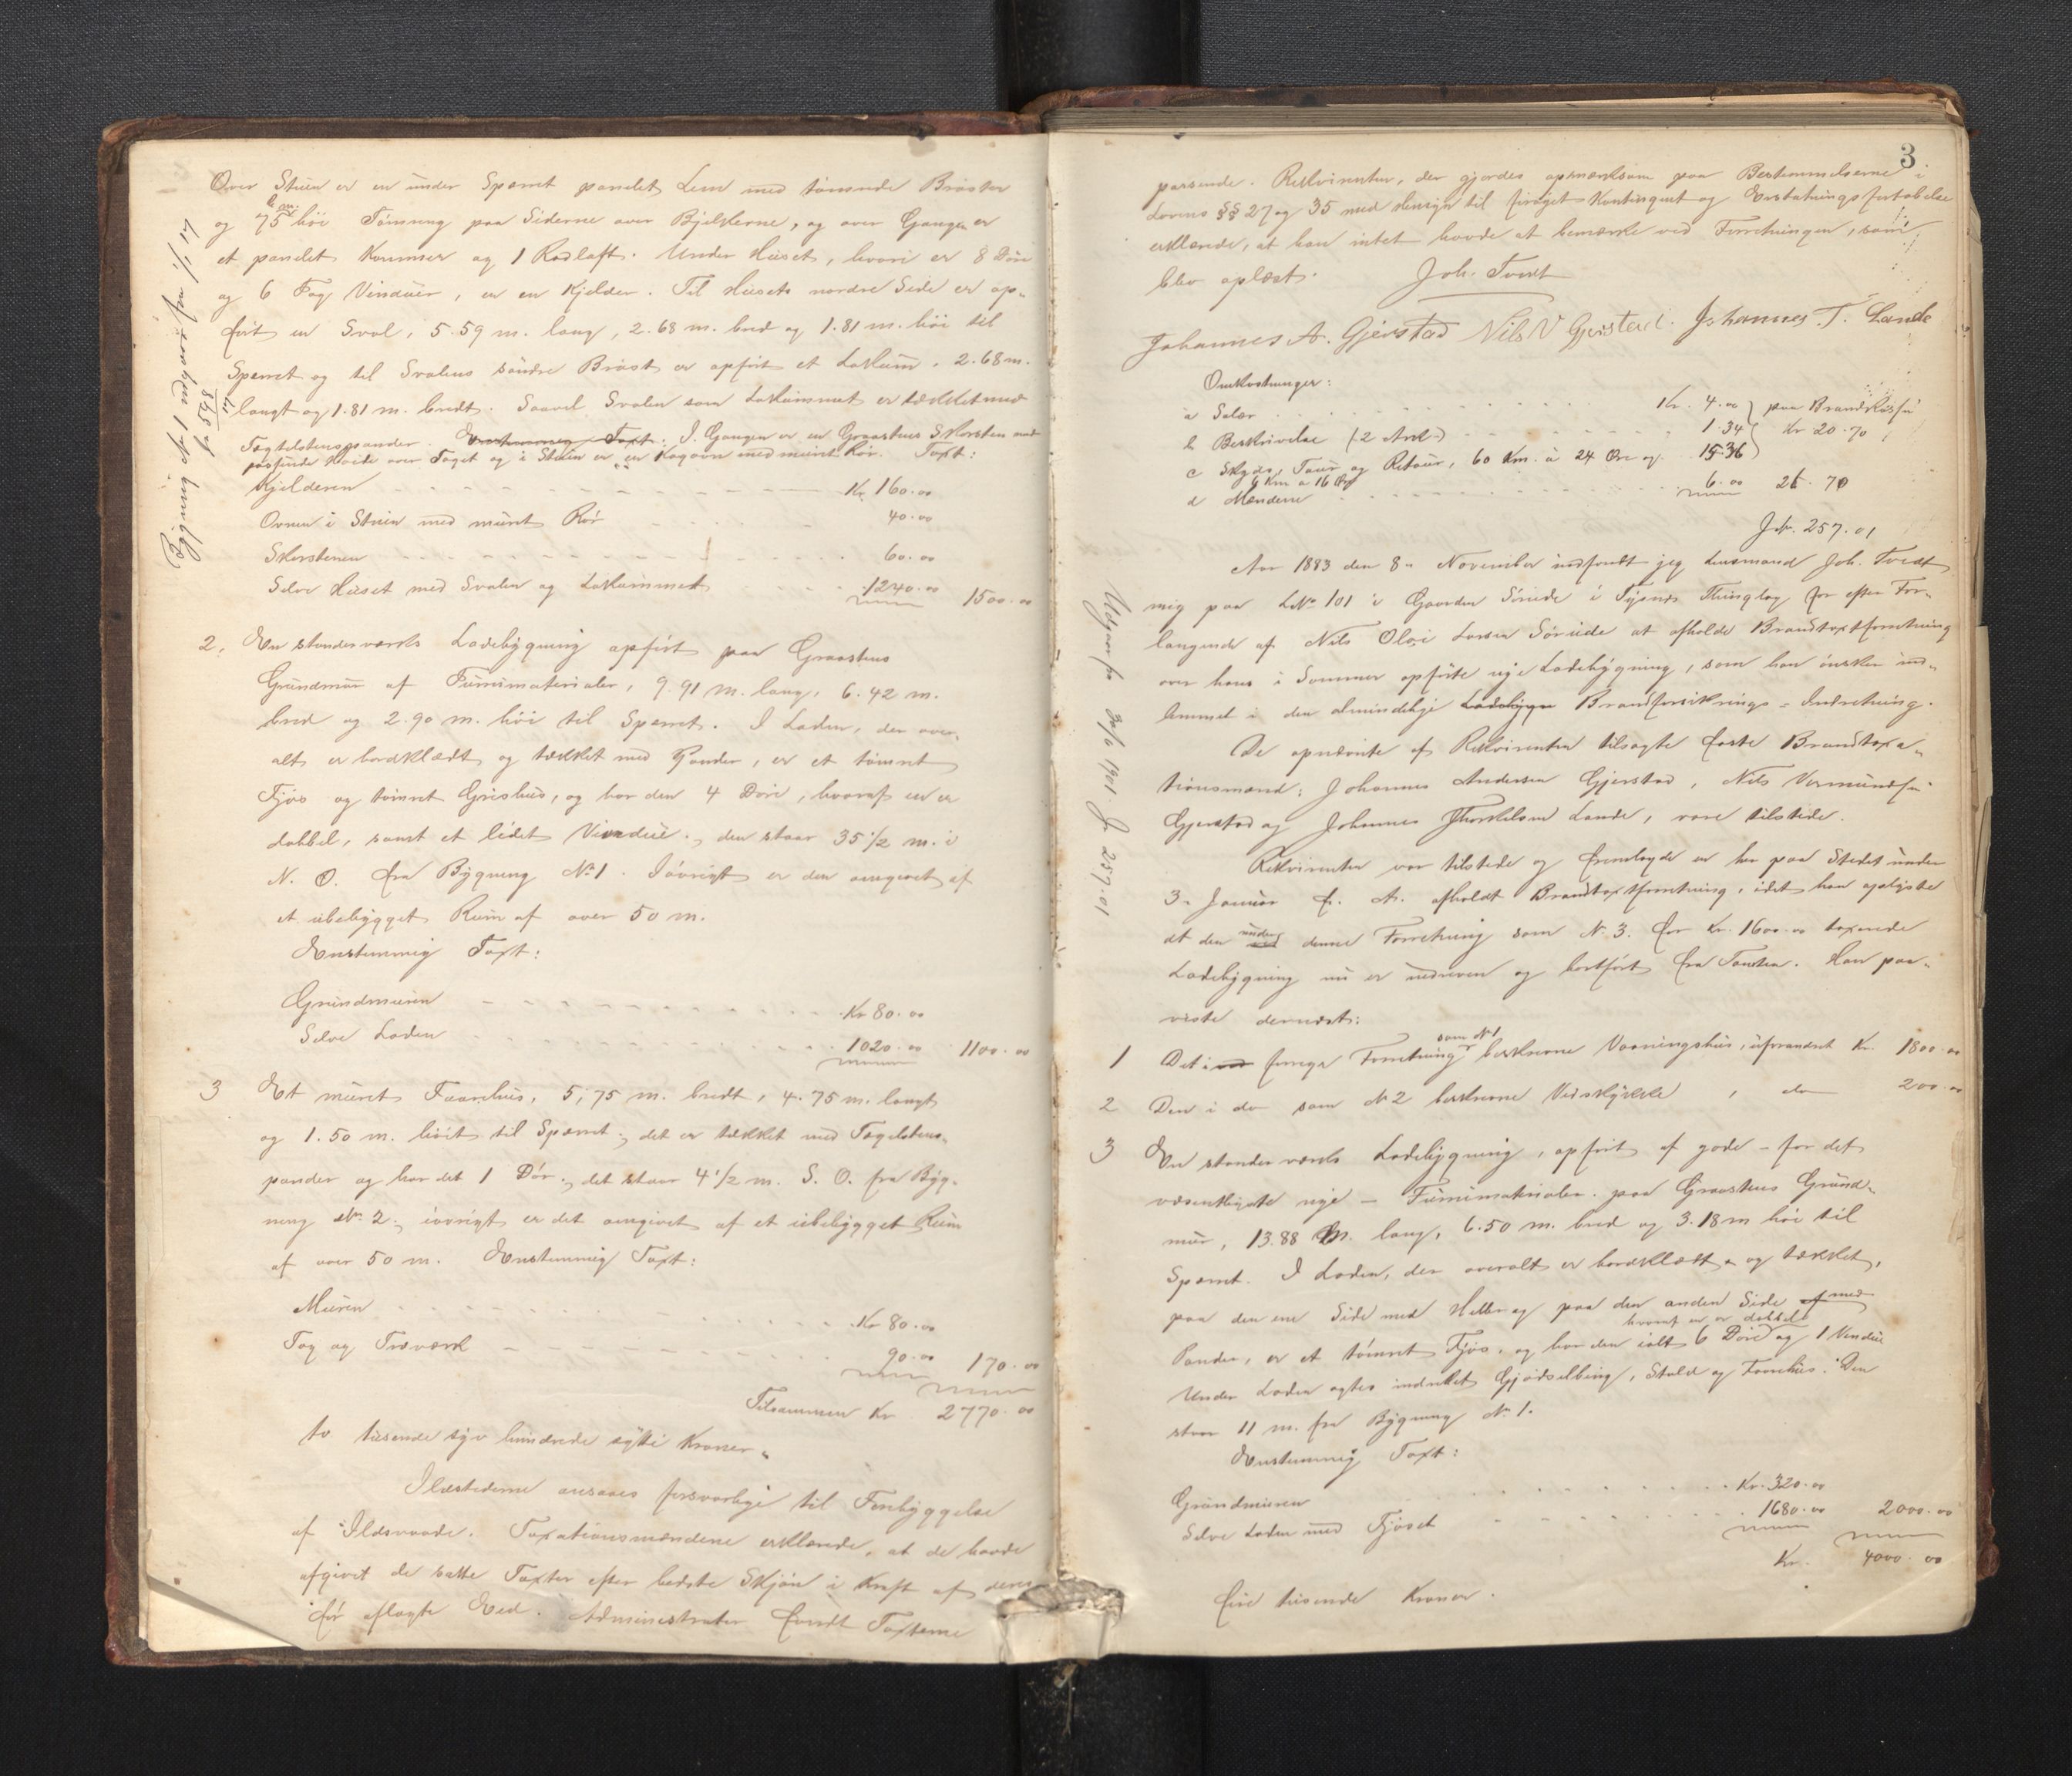 Over Stuen er en under Sperret panelet Lem med tømrede Brøster
og 75 cm. høi Tømring paa Siderne over Bjelkerne, og over Gangen er
et panelet Kammer og 1 Rodloft. Under Huset, hvori er 8 Døre
og 6 Fag Vinduer, er en Kjelder. Til Husets nordre Side er op-
ført en Sval, 5.59 m. lang, 2.68 m. bred og 1.81 m. høi til
Sperret og til Svalens søndre Brøst er opført et Lokum, 2.68 m.
langt og 1.81 m. bredt. Saavel Svalen som Lokummet er tækket med
Tagtelstenspander. Enstemmig Taxt: I Gangen er en Graastens Skorsten med
passende Høide over Taget og i Stuen er en Kogovn med muret Rør. Taxt:
Kjelderen Kr. 160.00
Ovnen i Stuen med muret Rør 40.00
Skorstenen 60.00
Selve Huset med Svalen og Lokummet 1240.00 1500.00
2. En standerværks Ladebygning opført paa Graastens
Grundmur af Furumaterialer, 9.91 m. lang, 6.42 m.
bred og 2.90 m. høi til Sperret. I Laden, der over-
alt er bordklædt og tækket med Pander, er et tømret
Fjøs og tømret Grishus, og har den 4 Døre, hvoraf en er
dobbel, samt et lidet Vindue; den staar 35 1/2 m. i
N. O. fra Bygning No 1. Iøvrigt er den omgivet af
et ubebygget Rum af over 50 m.
Enstemmig Taxt:
Grundmuren Kr 80.00
Selve Laden 1020.00 1100.00
3 Et muret Faarehus, 5,75 m. bredt, 4.75 m. langt
og 1.50 m. høit til Sperret; det er tækket med Tagelstens-
pander og har det 1 Dør; det staar 4 1/2 m. S. O. fra Byg-
ning No 2; iøvrigt er det omgivet af et ubebygget Rum
af over 50 m. Enstemmig Taxt:
Muren Kr 80.00
Tag og Træværk 90.00 170.00
Tilsammen Kr 2770.00
to tusende syv hundrede sytti Kroner.
Ildstederne ansaaes forsvarlige til Forebyggelse
af Ildsvaade. Taxationsmændene erklærede, at de havde
afgivet de satte Taxter efter bedste Skjøn i Kraft af deres
før aflagte Eed. Administrator fandt Taxterne
3
passende. Rekvirenten, der gjordes opmærksom paa Bestemmelserne i
Lovens §§ 27 og 35 med Hensyn til forøget Kontingent og Erstatningsfortabelse
erklærede, at han intet havde at bemærke ved Forretningen, som
blev oplæst. Joh. Tvedt
Johannes A. Gjerstad Nils V Gjerstad. Johannes T. Lande
Omkostninger:
a Salær Kr. 4.00 paa Brandkassen
b Beskrivelse (2 Ark) 1.34 Kr 20.70
c Skyds, Tour og Retour, 60 Km. à 24 Øre og 15.36
6 Km a 16 Øre
d Mændene 6.00 26.70
Jr. 257.01
Aar 1883 den 8. November indfandt jeg Lensmand Joh. Tvedt
mig paa LNo 101 i Gaarden Søreide i Tysnes Thinglag for efter For-
langende af Nils Olai Larsen Søreide at afholde Brandtaxtforretning
over hans i Sommer opførte nye Ladebygning, som han ønsker ind-
lemmet i den almindelige Ladebygn Brandforsikrings-Indretning.
De opnævnte af Rekvirenten tilsagte faste Brandtaxa-
tionsmænd: Johannes Andersen Gjerstad, Nils Vermundsen
Gjerstad og Johannes Thorkelsen Lande, vare tilstede.
Rekvirenten var tilstede og fremlagde en her paa Stedet under
3. Januar f. A. afholdt Brandtaxtforretning, idet han oplyste
at den under denne Forretning som No 3. for Kr. 1600.00 taxerede
Ladebygning nu er nedreven og bortført fra Tomten. Han paa-
viste dernæst:
1 Det i forrige Forretning som No 1 beskrevne Vaaningshus, uforandret Kr. 1800.00
2 Den i do som No 2 beskrevne Vedskykkle, do 200.00
3 En standerværks Ladebygning, opført af gode – for det
væsentligste nye – Furumaterialer paa Graastens Grund-
mur, 13.88 M. lang, 6.50 m. bred og 3.18 m høi til
Sperret. I Laden, der overalt er bordklædt og tækket,
paa den ene Side med Heller og paa den anden Side af med
Pander, er et tømret Fjøs, og har den ialt 6 Døre hvoraf en er dobbel og 1 Vindue
Under Laden agtes indrettet Gjødselbing, Stald og Faarehus. Den
staar 11 m. fra Bygning No 1.
Enstemmig Taxt:
Grundmuren Kr. 320.00
Selve Laden med Fjøset 1680.00 2000.00
Kr. 4000.00
fire tusende Kroner.
Udgaar fra 30/6 1901. Jr 257.01